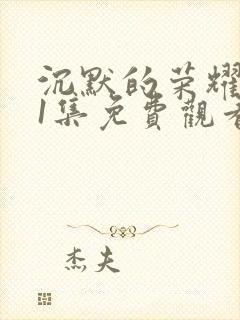 沉默的荣耀
1集免費觀看
杰夫